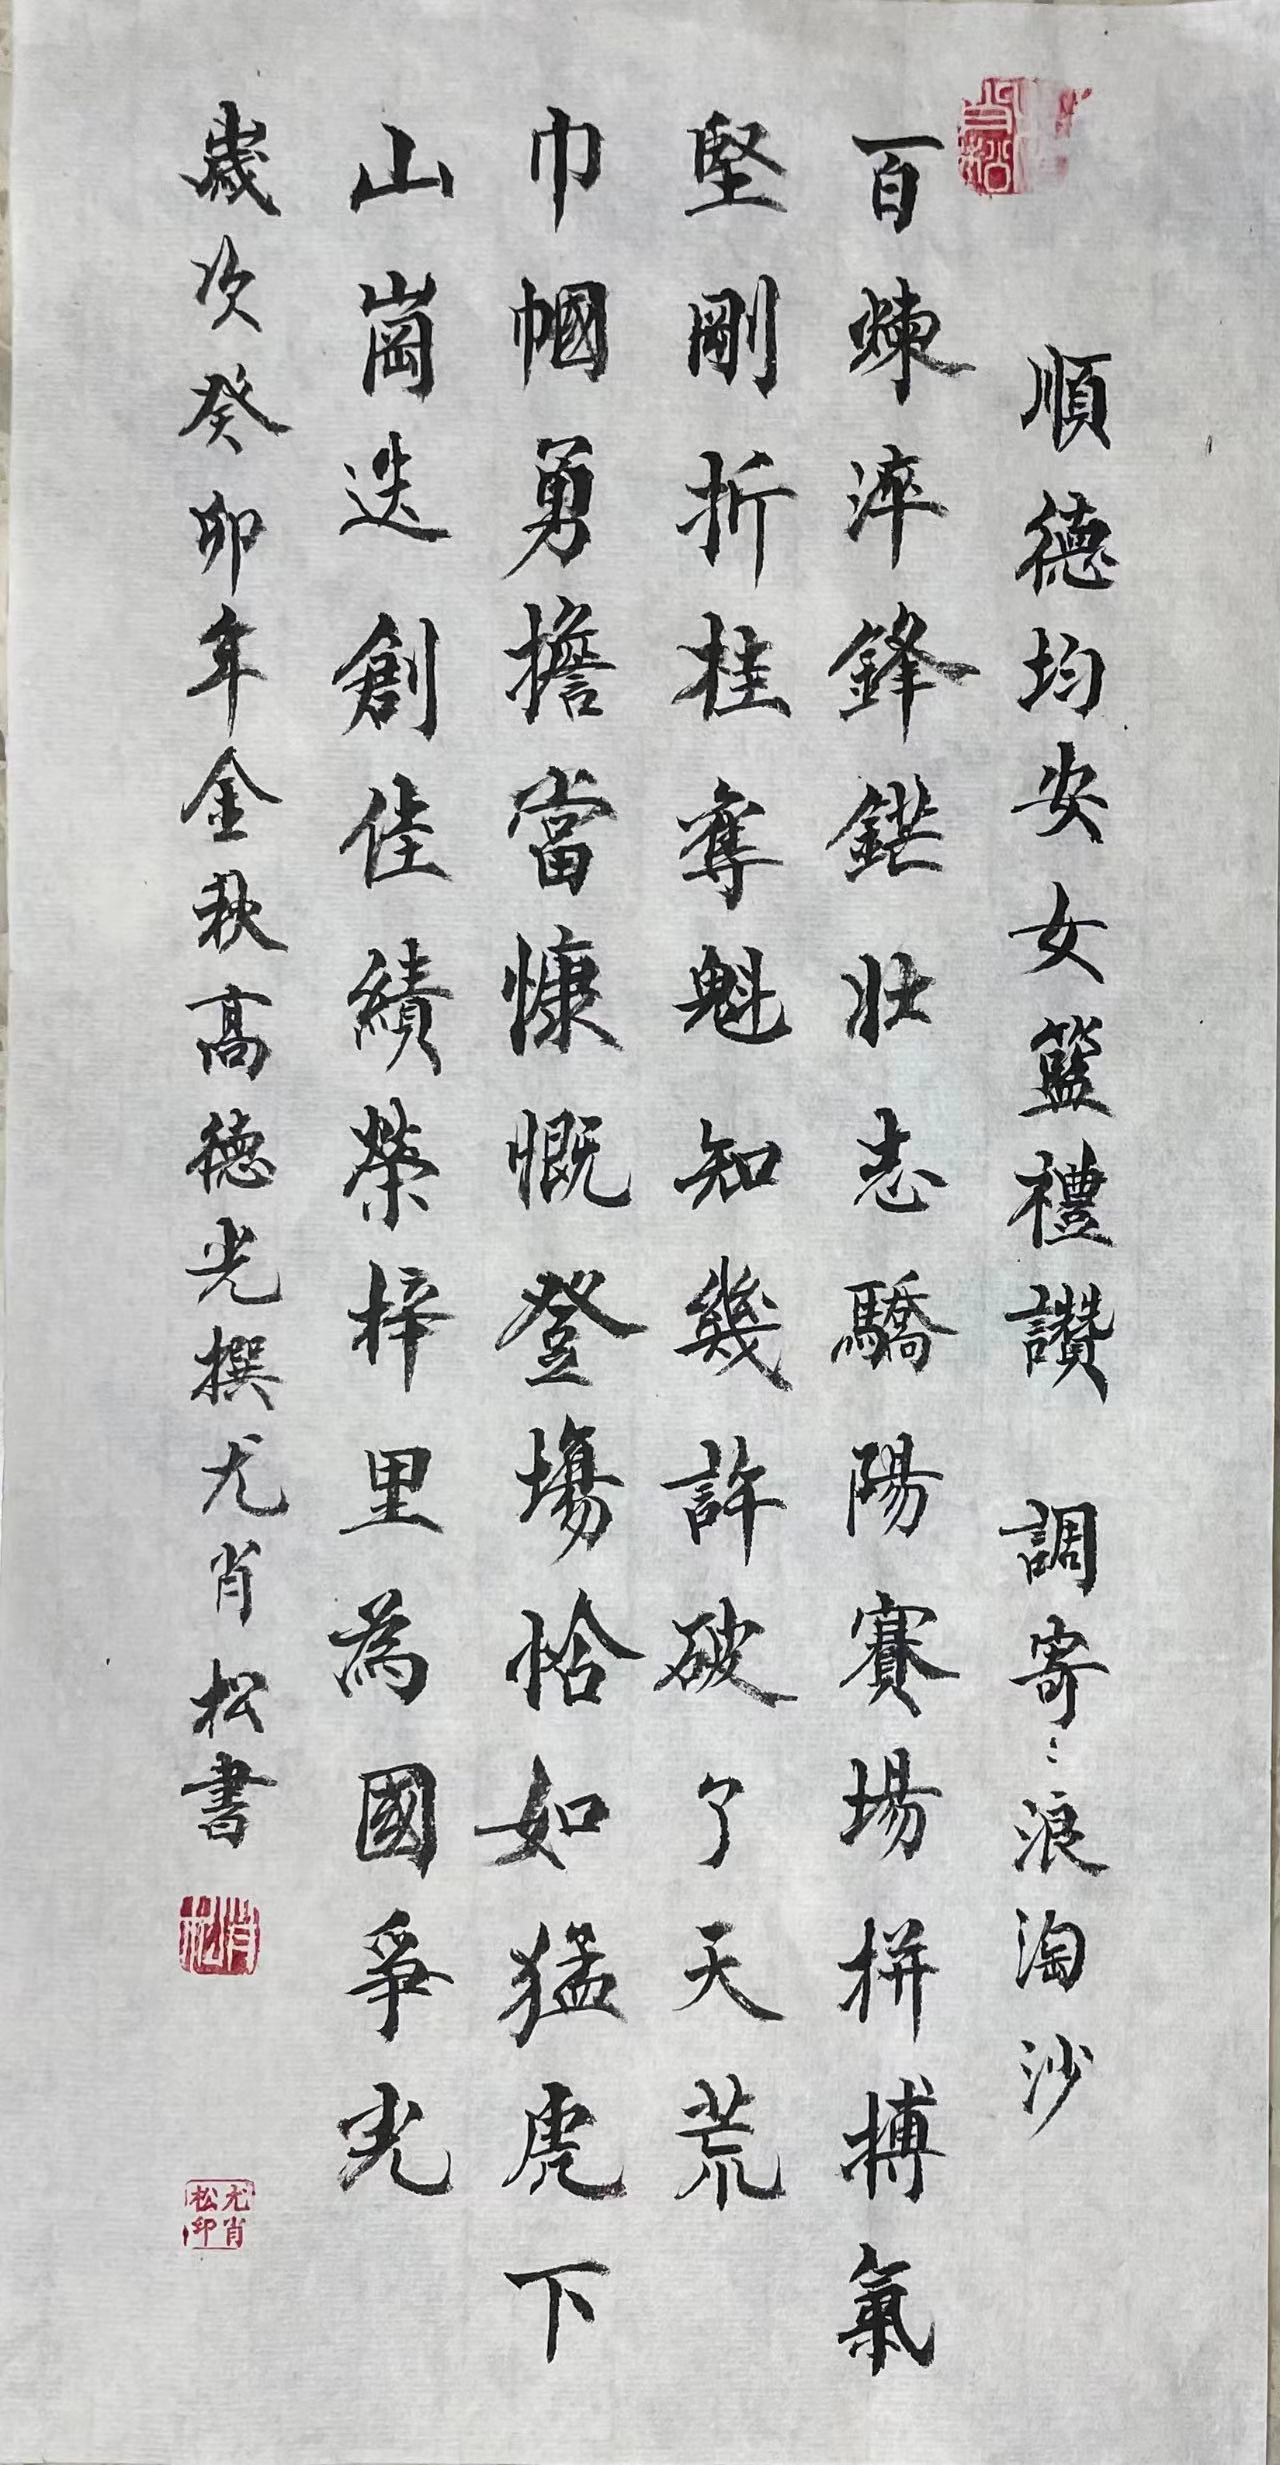 順德均安女籃禮讚 調寄：浪淘沙
百煉淬鋒鋩壯志驕陽賽場拼搏氣
堅剛折桂奪魁知幾許破了天荒
巾幗勇擔當慷慨登場恰如猛虎下
山崗迭創佳績榮梓里為國爭光
歲次癸卯年金秋高德光撰尤肖松書
肖松
尤肖松印